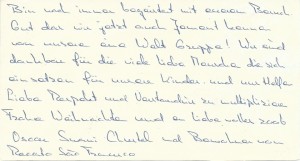 Bin noch immer begeistert mit eurem Besuch
Gut das wir jetzt auch jemant kennen
von unsere eine Welt Gruppe! Wir sind
dankbar für die viele liebe Mensche die sich
einsetzen für unsere Kinder. und mithelfe
Liebe Respekt und Verständnis zu multiplizieren
Frohe Weihnachte und ein liebe volles 2006
Oscar Christel und Bewohner von
Recanto São Francisco